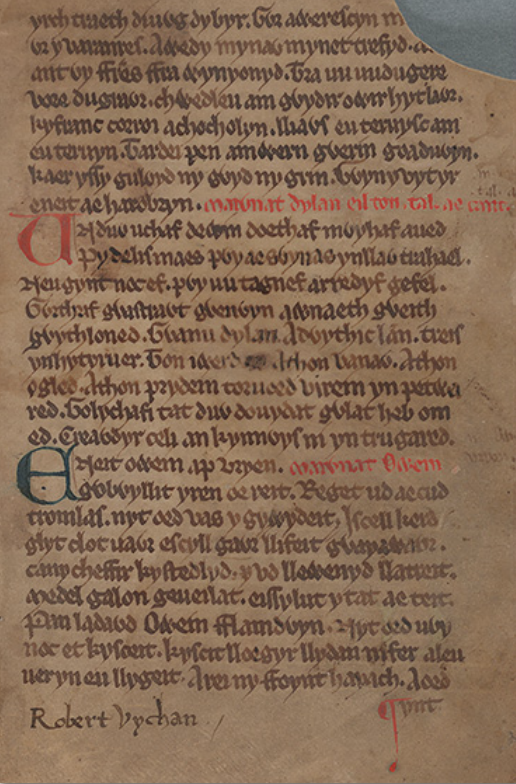 yrch traeth diuỽg dybyr. Gỽr a werescyn m
ỽr y varanres. Awedy mynaỽ mynet trefyd. a
ant vy ffres ffra wynyonyd. Tra uu uudugere
vore dugraỽr. chỽedleu am gỽydir owir hyt laỽr.
kyfranc corroi achocholyn. lliaỽs eu teruysc am
eu teruyn. Tardei pen amwern gỽerin goadỽyn.
kaer yssy gulỽyd ny gỽyd ny grin. Gỽyn y vyt yr
eneit ae harobryn. marỽnat dylan eil ton. tal. ae cant.
Vn duỽ uchaf deỽin doethaf mỽyhaf aued
Py delis maes pỽy ae sỽynas yn llaỽ trahael.
Neu gynt noc ef. pỽy uu tagnef ar redyf gefel.
Gỽrthrif gỽastraỽt gỽenỽyn aỽnaeth gỽeith
gỽythloned. Gỽanu dylan. Adỽythic lan. treis
ynhytyruer. Ton iwerd Athon vanaỽ. Athon
ogled. Athon prydein toruoed virein yn petwa
red. Golychafi tat duỽ douydat gỽlat heb om
ed. Creaỽdyr celi an kynnỽys ni yn trugared.
Eneit owein ap vryen. marỽnat Owein
gobỽyllit yren oe reit. Reget ud ae cud
tromlas. nyt oed vas y gywydeit. Iscell kerd
glyt clotuaỽr escyll gaỽr llifeit gỽayỽaỽr.
cany cheffir kystedlyd. y vd lleỽenyd llatreit.
Medel galon geueilat. eissylut y tat ae teit.
Pan ladaỽd Owein fflamdỽyn. Nyt oed uỽy
noc et kysceit. kyscit lloegyr llydan nifer aleu
ueryn eu llygeit. A rei ny ffoynt hayach. Aoed
ynt.
Robert Vychan